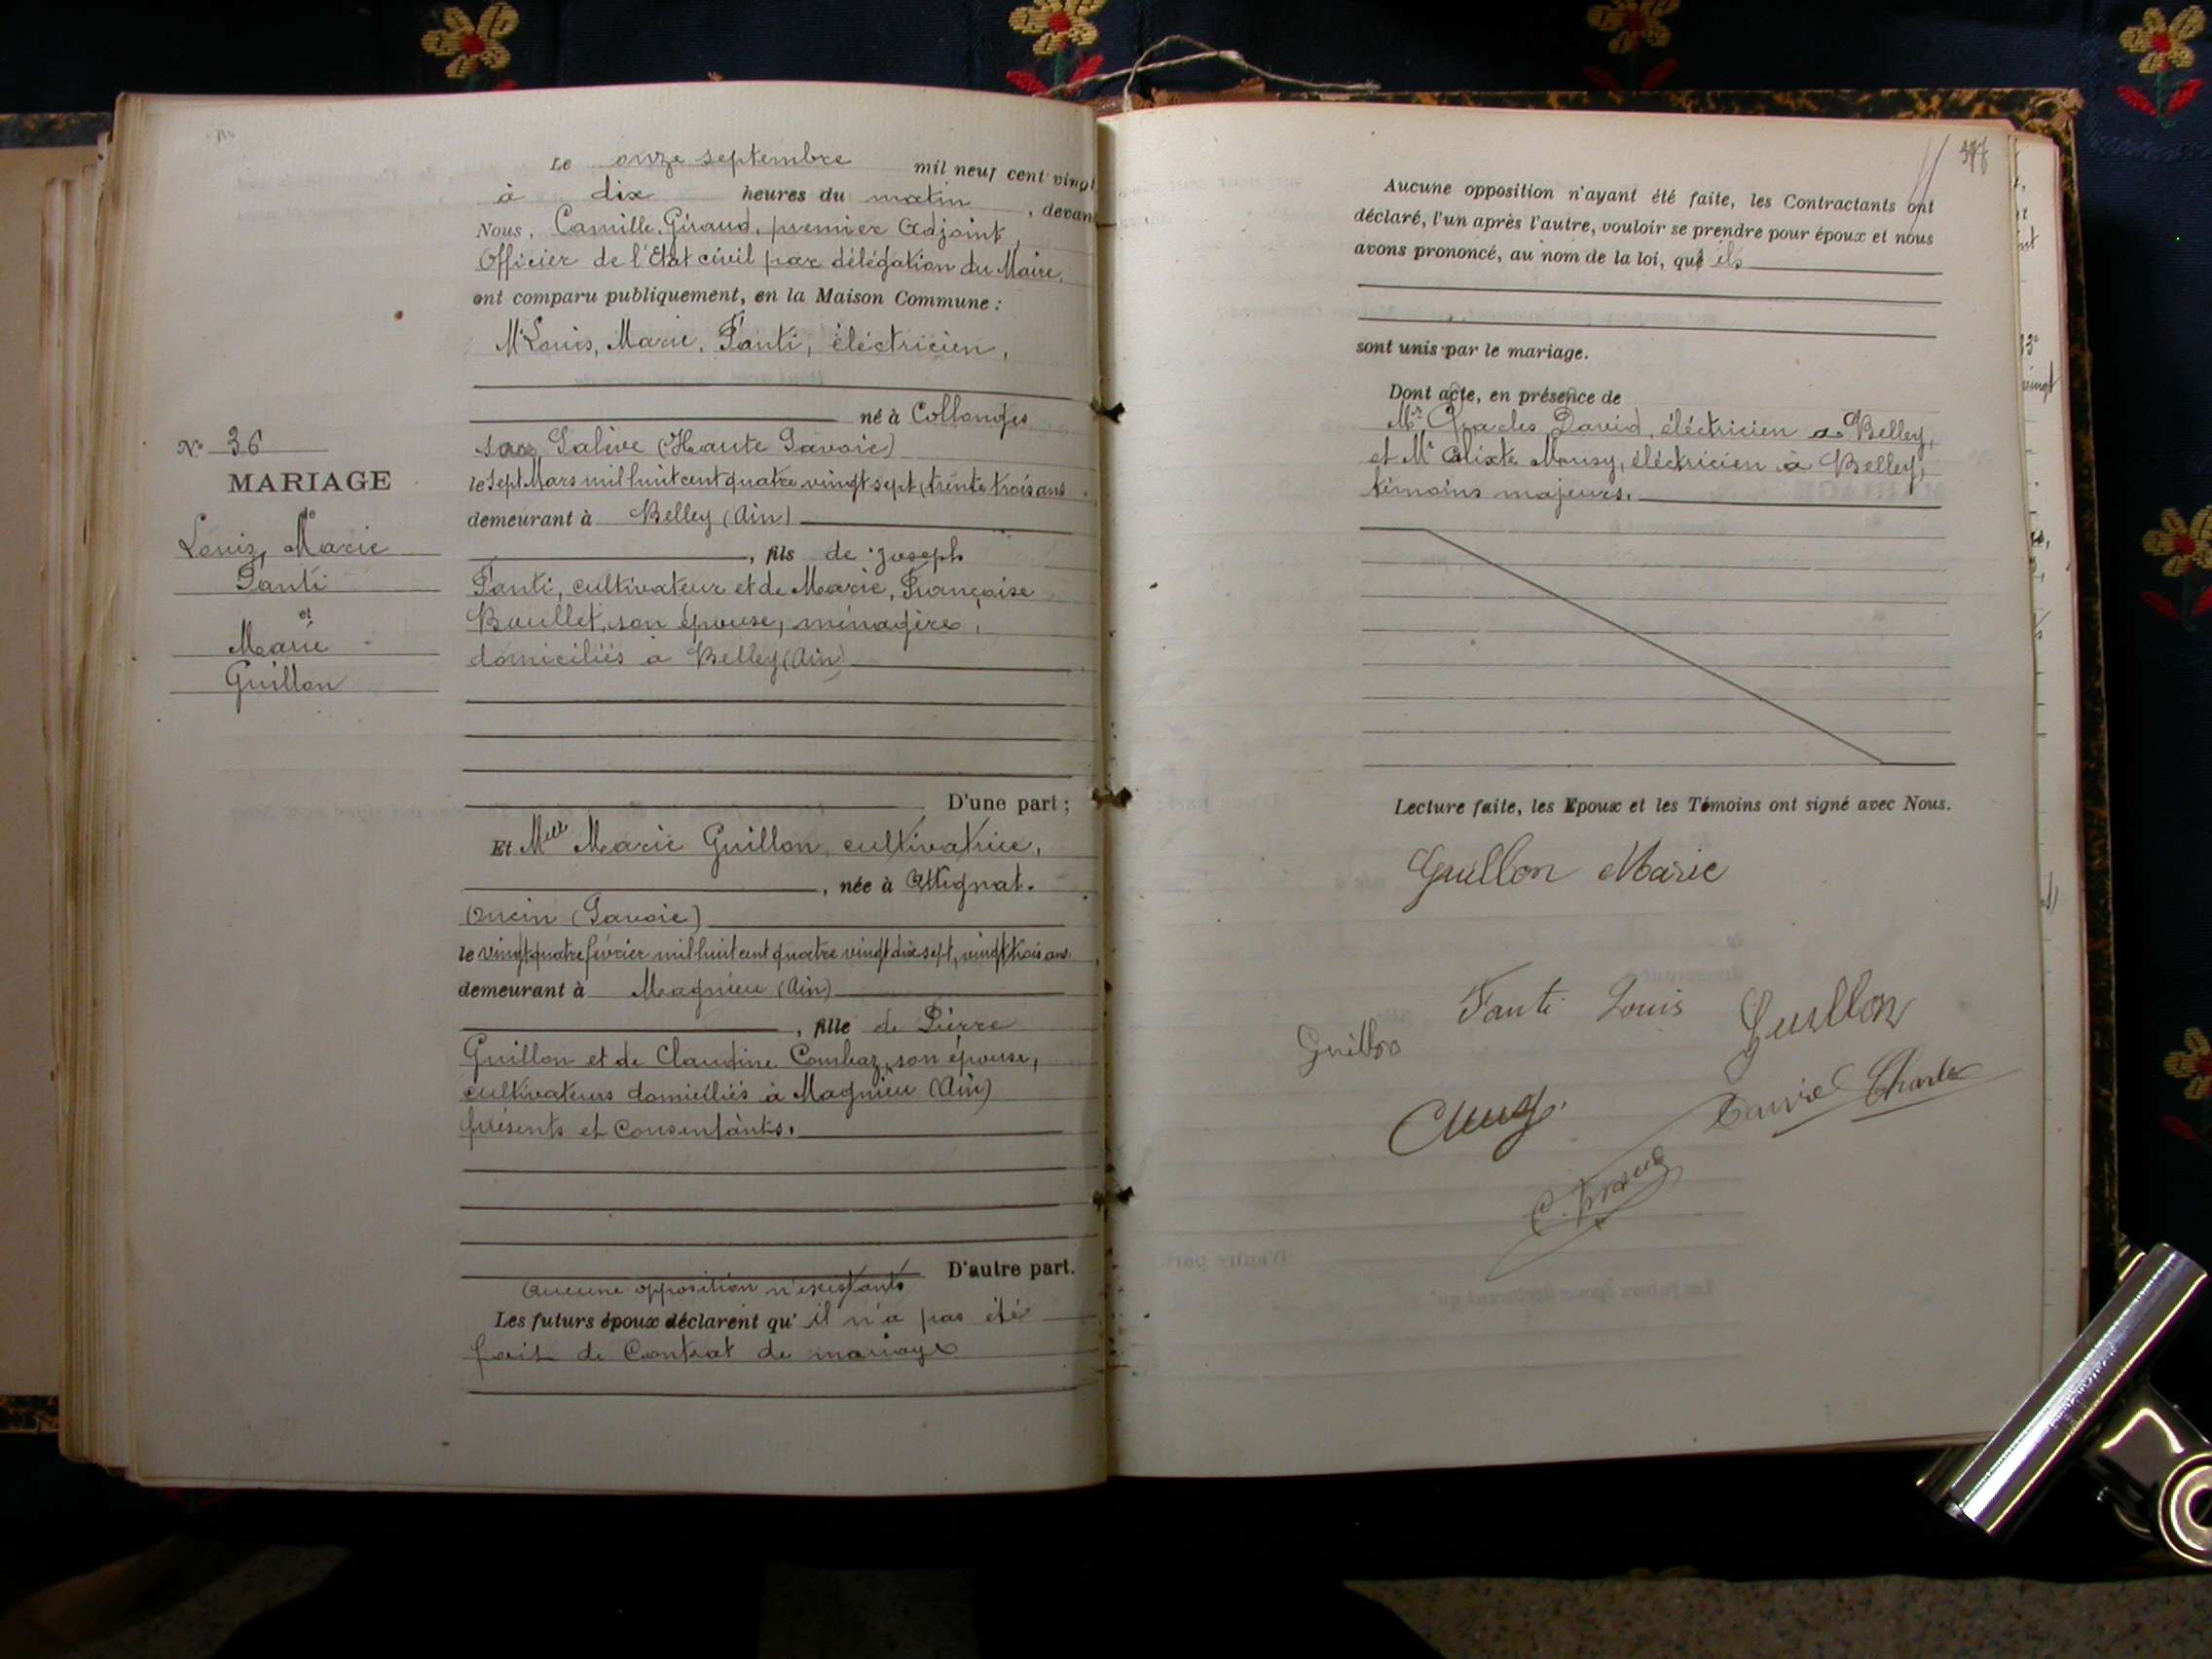 Le onze septembre mil neuf cent vingt
à dix heures du matin, devant
Nous, Camille Giraud, premier Adjoint,
Officier de l'Etat civil par délégation du Maire,
ont comparu publiquement, en la Maison Commune :
Mr Louis, Marie, Fanti, éléctricien,
né à Collonges
sous Salève (Haute Savoie)
le Sept Mars mil huit cent quatre vingt sept, trente trois ans
demeurant à Belley (Ain)
, fils de Joseph
Fanti, cultivateur et de Marie, Françoise
Boullet, son épouse, ménagère,
domiciliés à Belley (Ain)
D'une part ;
Et Melle Marie Guillon, cultivatrice,
, née à Attignat-
Oncin (Savoie)
le vingt quatre février mil huit cent quatre vingt dix sept, vingt trois ans
demeurant à Magnieu (Ain)
, fille de Pierre
Guillon et de Claudine Combaz, son épouse,
cultivateurs domiciliés à Magnieu (Ain)
présents et Consentants.
D'autre part.
Aucune opposition n'existant
Les futurs époux déclarent qu' il n'a pas été
fait de Contrat de mariage
No 36
MARIAGE
de
Louis, Marie
Fanti
et
Marie
Guillon
397
Aucune opposition n'ayant été faite, les Contractants ont
déclaré, l'un après l'autre, vouloir se prendre pour époux et nous
avons prononcé, au nom de la loi, qu' ils
sont unis par le mariage.
Dont acte, en présence de
Mr Charles David, éléctricien à Belley,
et Mr Calixte, éléctricien à Belley,
témoins majeurs.
Lecture faite, les Epoux et les Témoins ont signé avec Nous.
Guillon Marie
Fanti Louis
Guillon
Guillon
David Charles
C. Giraud